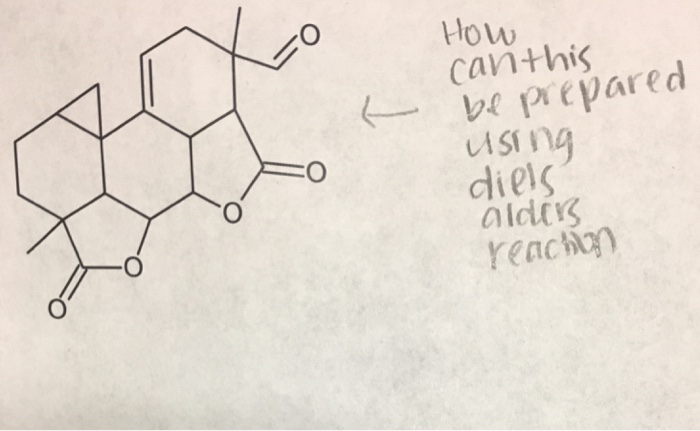 O
How
canthis
be prepared
using
diels
alders
reaction
O
O
O
O